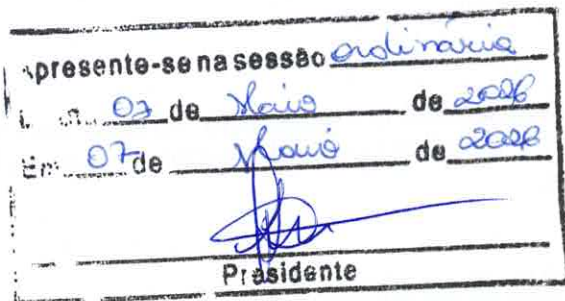 Apresente-se na sessão ordinária
07 de Maio de 2026
Em 07 de Maio de 2026
Presidente